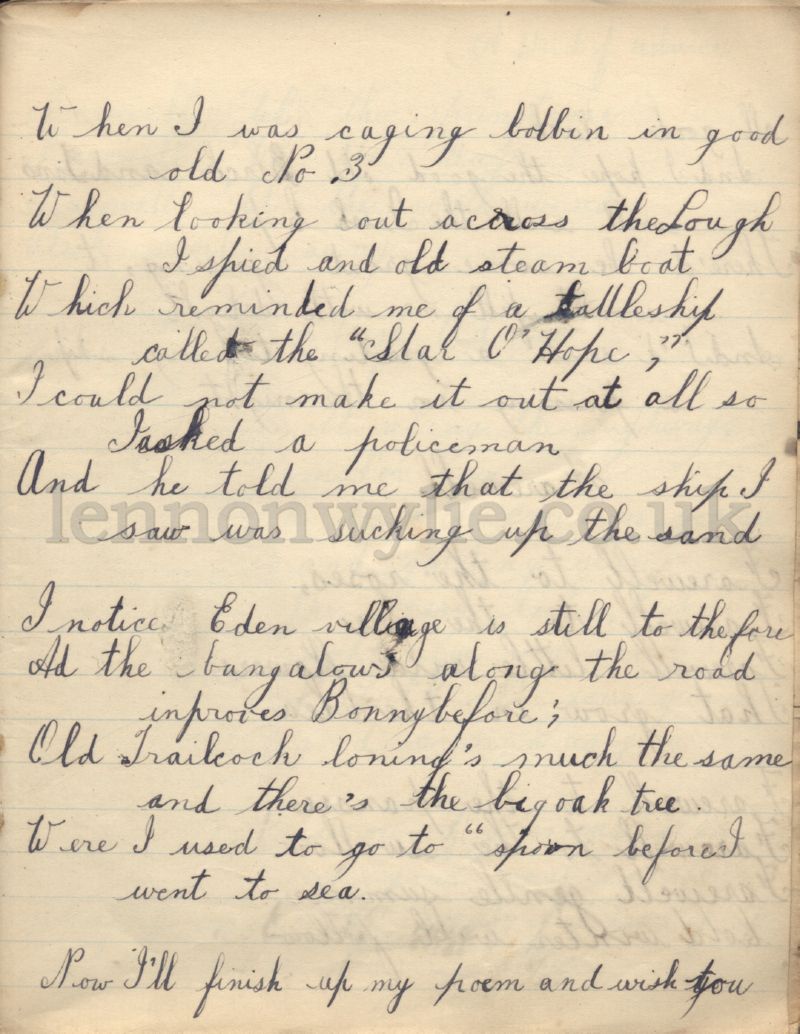 When I was caging bolbin in good
old No. 3
When looking out across the Lough
I spied and old steam boat
Which reminded me of a battleship
called the "Star O' Hope,"
I could not make it out at all so
I asked a policeman
And he told me that the ship I
saw was sucking up the sand
lennonwylie.co.uk
I notice Eden village is still to the fore
Ad the bangalows along the road
inproves Bonnybefore;
Old Trailcock loning's much the same
and there's the big oak tree.
Were I used to go to "spoon before I
went to sea.
Now I'll finish up my poem and wish you